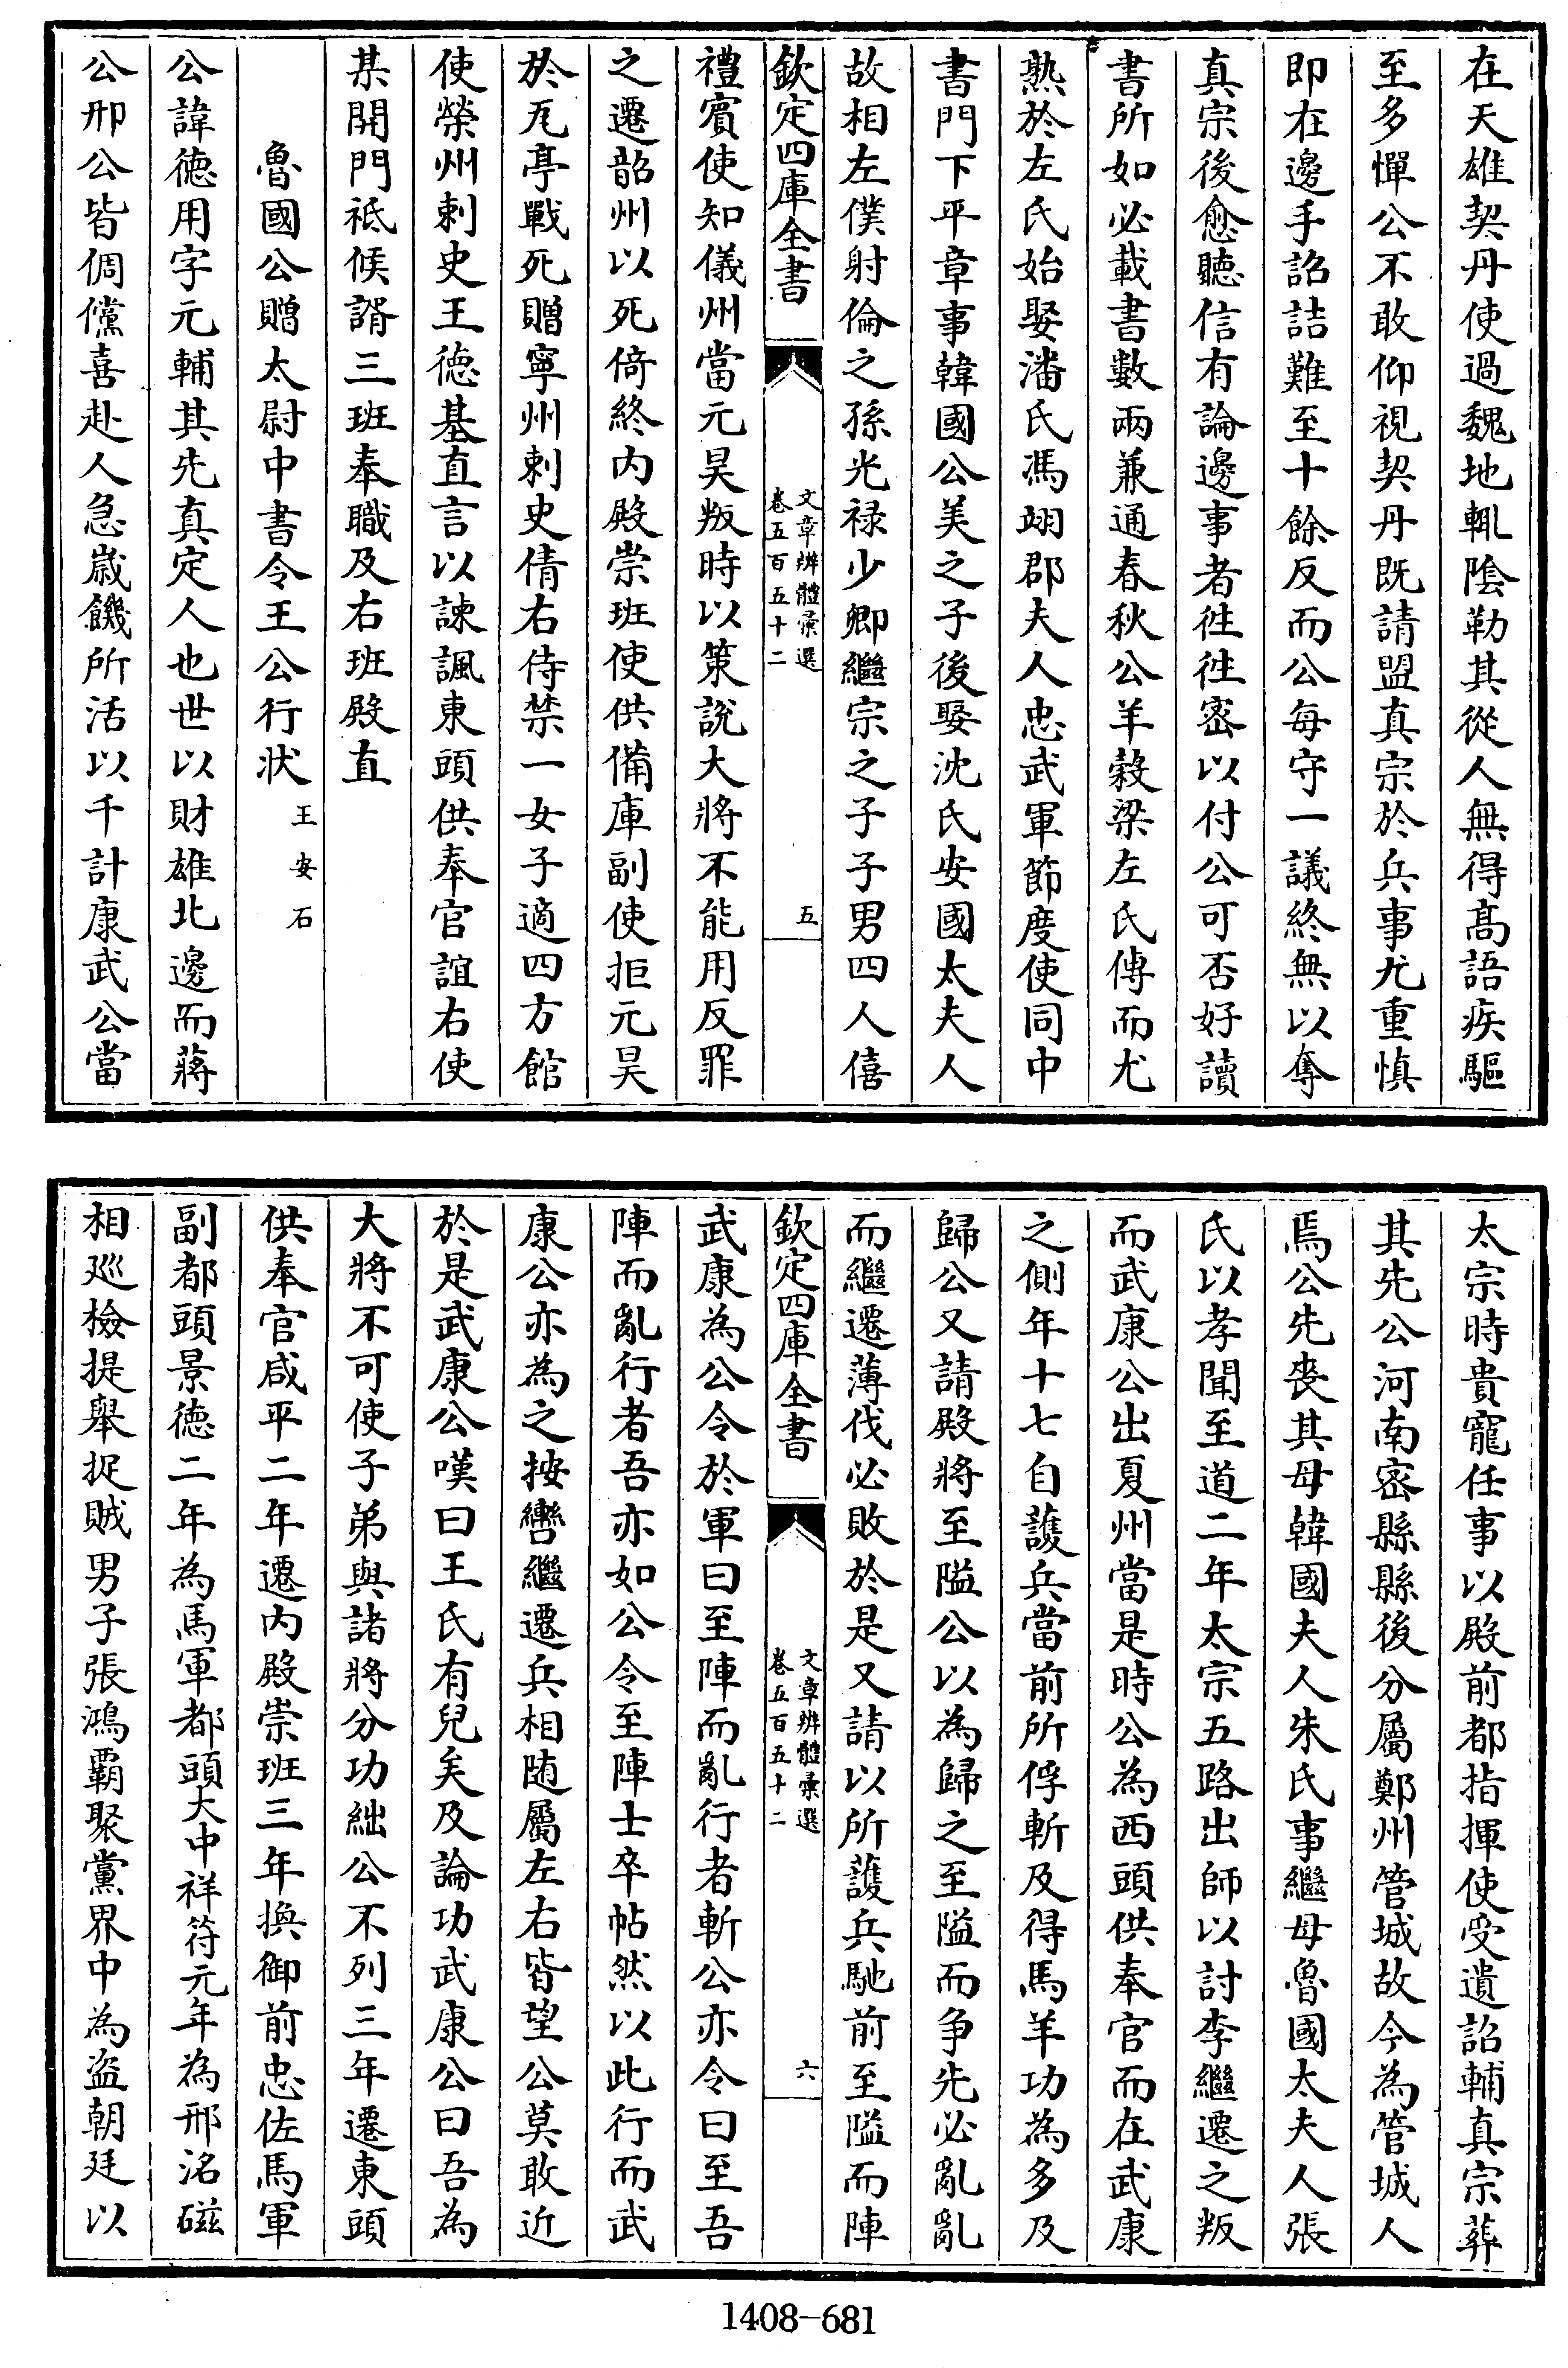 在天雄契丹使過魏地輒陰勒其從人無得高語疾驅
至多憚公不敢仰視契丹既請盟真宗於兵事尤重慎
即在邊手詔詰難至十餘反而公每守一議終無以奪
真宗後愈聽信有論邊事者徃徃密以付公可否好讀
書所如必載書數兩兼通春秋公羊榖梁左氏傳而尤
熟於左氏始娶潘氏馮翊郡夫人忠武軍節度使同中
書門下平章事韓國公美之子後娶沈氏安國太夫人
故相左僕射倫之孫光禄少卿繼宗之子子男四人僖
欽定四庫全書
文章辨體彚選
卷五百五十二
五
禮賓使知儀州當元昊叛時以策說大將不能用反罪
之遷韶州以死倚終内殿崇班使供備庫副使拒元昊
於瓦亭戰死贈寧州刺史倩右侍禁一女子適四方館
使榮州刺史王德基直言以諫諷東頭供奉官誼右使
某開門祗候諝三班奉職及右班殿直
魯國公贈太尉中書令王公行状
王安石
公諱德用字元輔其先真定人也世以財雄北邊而蔣
公邢公皆倜儻喜赴人急嵗饑所活以千計康武公當
太宗時貴寵任事以殿前都指揮使受遺詔輔真宗葬
其先公河南密縣縣後分屬鄭州管城故今為管城人
焉公先喪其母韓國夫人朱氏事繼母魯國太夫人張
氏以孝聞至道二年太宗五路出師以討李繼遷之叛
而武康公出夏州當是時公為西頭供奉官而在武康
之側年十七自護兵當前所俘斬及得馬羊功為多及
歸公又請殿將至隘公以為歸之至隘而争先必亂亂
而繼遷薄伐必敗於是又請以所護兵馳前至隘而陣
欽定四庫全書
文章辨體彚選
卷五百五十二
六
武康為公令於軍曰至陣而亂行者斬公亦令曰至吾
陣而亂行者吾亦如公令至陣士卒帖然以此行而武
康公亦為之按轡繼遷兵相随屬左右皆望公莫敢近
於是武康公嘆曰王氏有兒矣及論功武康公曰吾為
大將不可使子弟與諸將分功絀公不列三年遷東頭
供奉官咸平二年遷内殿崇班三年換御前忠佐馬軍
副都頭景徳二年為馬軍都頭大中祥符元年為邢洺磁
相巡檢提舉捉賊男子張鴻霸聚黨界中為盗朝廷以
1408-681